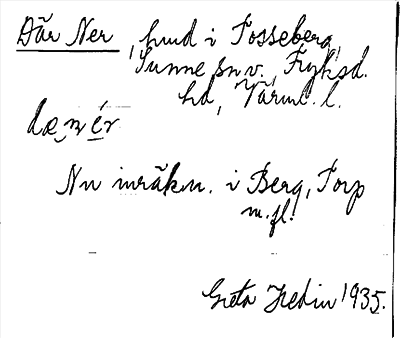 Där Ner, hmd i Fosseberg,
Sunne sn v., Fryksd.
hd, Värml. l.
dæ̱ṇ é̱r
Nu inräkn. i Berg, Torp
m. fl.
Greta Hedin 1935.